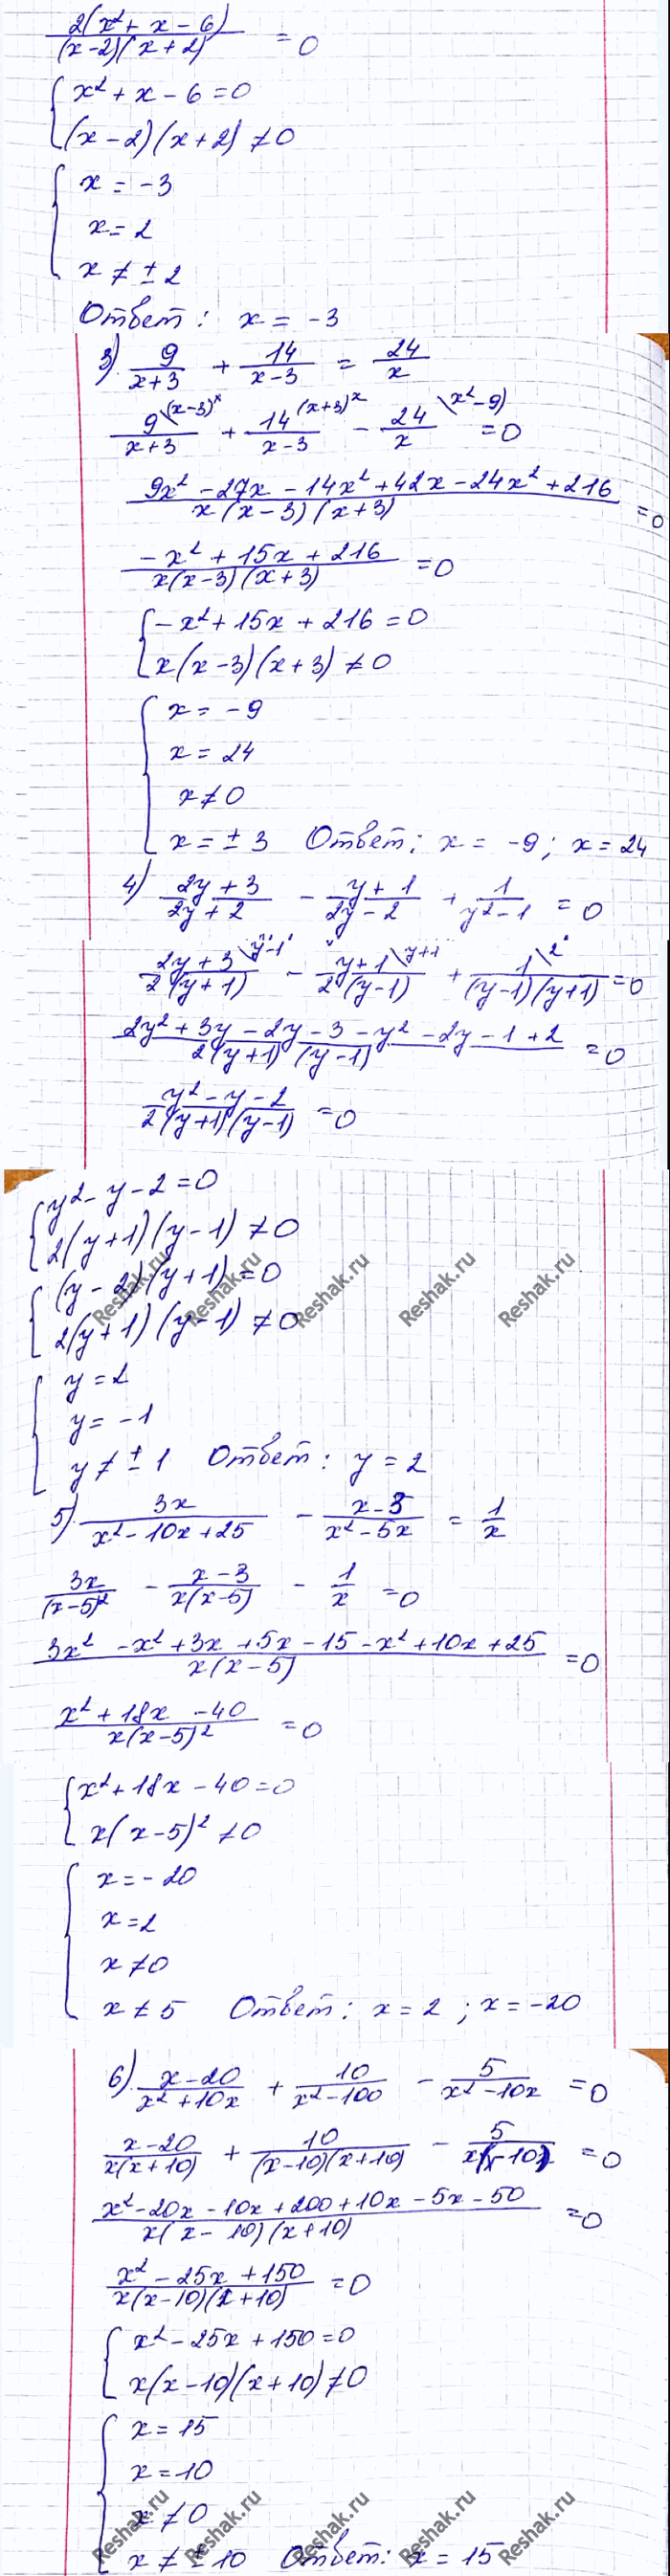 2(x² + x - 6) / (x-2)(x+2) = 0
{ x² + x - 6 = 0
(x-2)(x+2) ≠ 0
{ x = -3
x = 2
x ≠ ± 2
Ответ: x = -3
3) 9/(x+3) + 14/(x-3) = 24/x
9\(x-3)ˣ/(x+3) + 14(x+3)ˣ/(x-3) - 24\(x²-9)/x = 0
9x² - 27x - 14x² + 42x - 24x² + 216 / x(x-3)(x+3) = 0
-x² + 15x + 216 / x(x-3)(x+3) = 0
{ -x² + 15x + 216 = 0
x(x-3)(x+3) ≠ 0
{ x = -9
x = 24
x ≠ 0
x = ± 3 Ответ: x = -9; x = 24
4) (2y+3)/(2y+2) - (y+1)/(2y-2) + 1/(y²-1) = 0
2y+3\y-1 / 2(y+1) - y+1\y+1 / 2(y-1) + 1\2 / (y-1)(y+1) = 0
2y² + 3y - 2y - 3 - y² - 2y - 1 + 2 / 2(y+1)(y-1) = 0
y² - y - 2 / 2(y+1)(y-1) = 0
{ y² - y - 2 = 0
2(y+1)(y-1) ≠ 0
{ (y-2)(y+1) = 0
2(y+1)(y-1) ≠ 0
Reshak.ru Reshak.ru Reshak.ru Reshak.ru Reshak.ru
{ y = 2
y = -1
y ≠ ± 1 Ответ: y = 2
5) 3x/(x²-10x+25) - (x-3)/(x²-5x) = 1/x
3x/(x-5)² - (x-3)/x(x-5) - 1/x = 0
3x² - x² + 3x + 5x - 15 - x² + 10x + 25 / x(x-5) = 0
x² + 18x - 40 / x(x-5)² = 0
{ x² + 18x - 40 = 0
x(x-5)² ≠ 0
{ x = -20
x = 2
x ≠ 0
x ≠ 5 Ответ: x = 2; x = -20
6) (x-20)/(x²+10x) + 10/(x²-100) - 5/(x²-10x) = 0
(x-20)/x(x+10) + 10/(x-10)(x+10) - 5/x(x-10) = 0
x² - 20x - 10x + 200 + 10x - 5x - 50 / x(x-10)(x+10) = 0
x² - 25x + 150 / x(x-10)(x+10) = 0
{ x² - 25x + 150 = 0
x(x-10)(x+10) ≠ 0
{ x = 15
x = 10
x ≠ 0
x ≠ ± 10 Ответ: x = 15
Reshak.ru Reshak.ru Reshak.ru Reshak.ru Reshak.ru